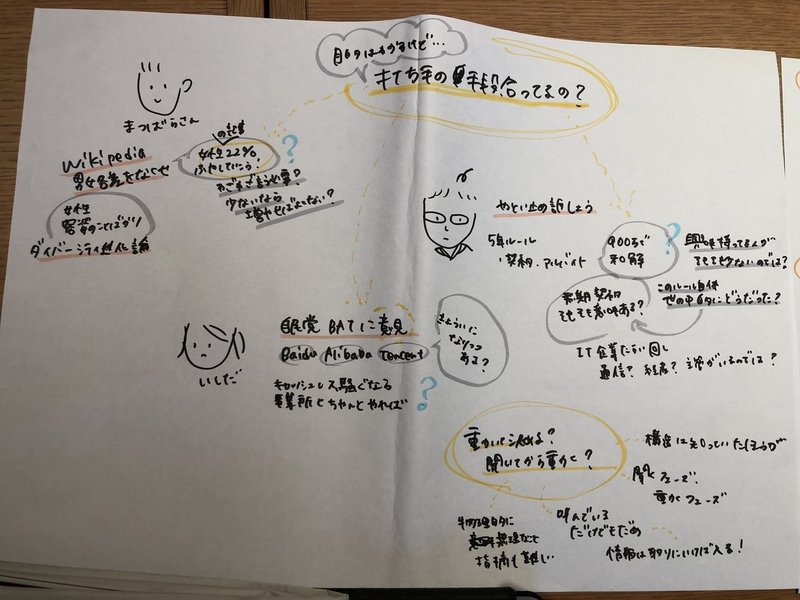 目的はわかるけど…
その手段合ってるの？
まつばらさん
Wikipedia
男女格差をなくせ
の記事
女性22%
ふやしていこう!
わざわざ言う必要?
少ないなら
増やせばよくない?
女性
容姿のことばかり
ダイバーシティ進化論
やとい止め訴しょう
5年ルール
契約、アルバイト
900万で
和解
興味持ってる人が
そもそも少ないのでは?
このルール自体
世の中的にどうだった?
有期契約
そもそも意味ある?
IT企業たらい回し
通信? 経産? 主管がいるのでは?
いしだ
眼党 BATに意見
Baidu Alibaba Tencent
きょういに
なりつつ
ある?
キャッシュレス騒ぐなる
事業所とちゃんとやれば
動いて決める?
聞いてから動く?
構造は知っていたほうが
聞くフェーズ、
動くフェーズ
物理的に
意味無理なこと
指摘も難しい
叫んでいる
だけでもだめ
情報は取りにいけば入る!